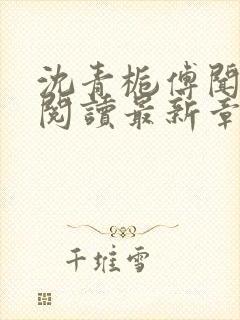 沈青栀傅聞
閱讀最新章
千堆雪